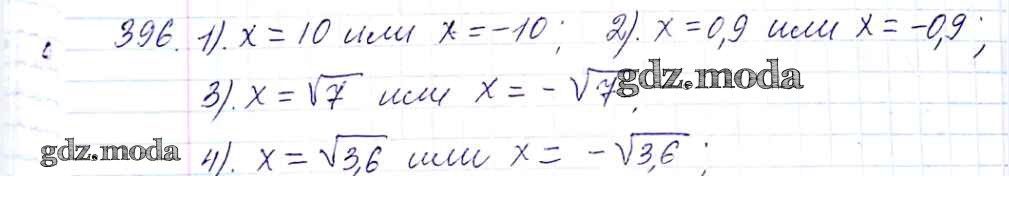 396. 1). x = 10 или x = -10; 2). x = 0,9 или x = -0,9;
3). x = √7 или x = - √7;
gdz.moda
gdz.moda
4). x = √3,6 или x = - √3,6;